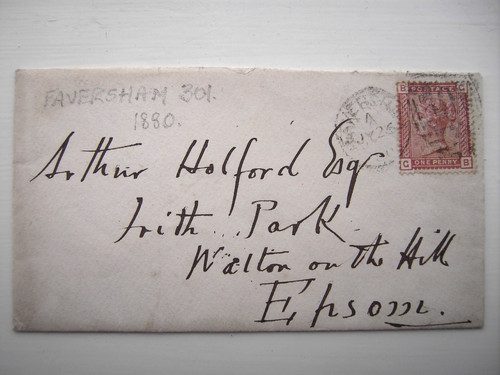 FAVERSHAM 301.
1880.
B POSTAGE C
C ONE PENNY B
A
JY 26
Arthur Holford Esq
Frith Park
Walton on the Hill
Epsom.